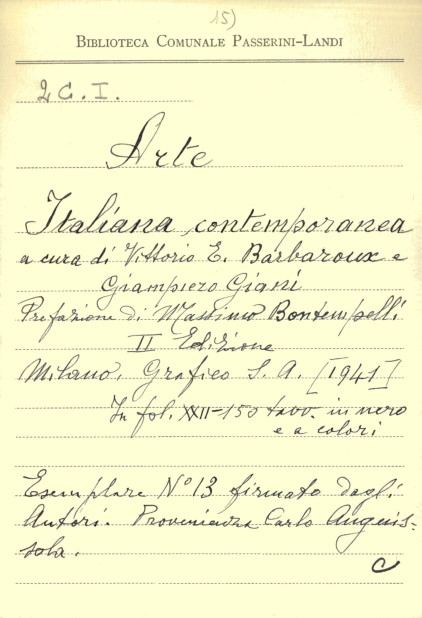 15)
BIBLIOTECA COMUNALE PASSERINI-LANDI
2 C. I.
Arte
Italiana contemporanea
a cura di Vittorio E. Barbaroux e
Giampiero Giani
Prefazione di Massimo Bontempelli
II Edizione
Milano, Grafico S. A. [1941]
In fol. XXII-150 tavv. in nero
e a colori
Esemplare N° 13 firmato dagli
Autori. Provenienza Carlo Anguis-
sola.
C